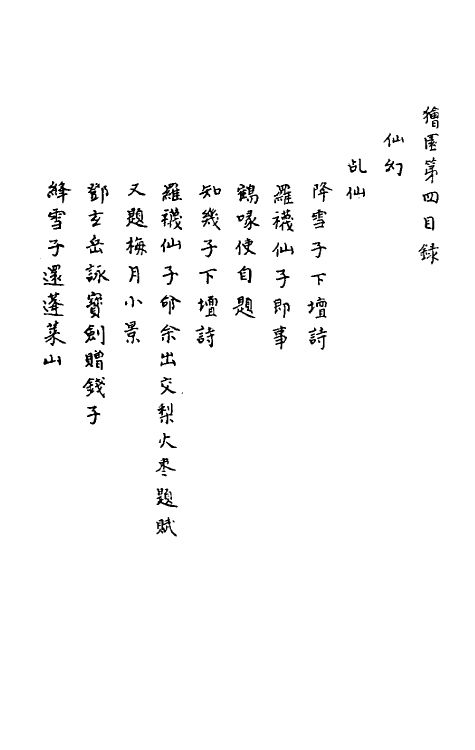 獪園第四目録
仙幻
乩仙
降雪子下壇詩
羅襪仙子即事
鶴喙使自題
知幾子下壇詩
羅襪仙子命余出交梨火枣題賦
又題梅月小景
鄧玄岳詠寳劍贈錢子
絳雪子還蓬莱山